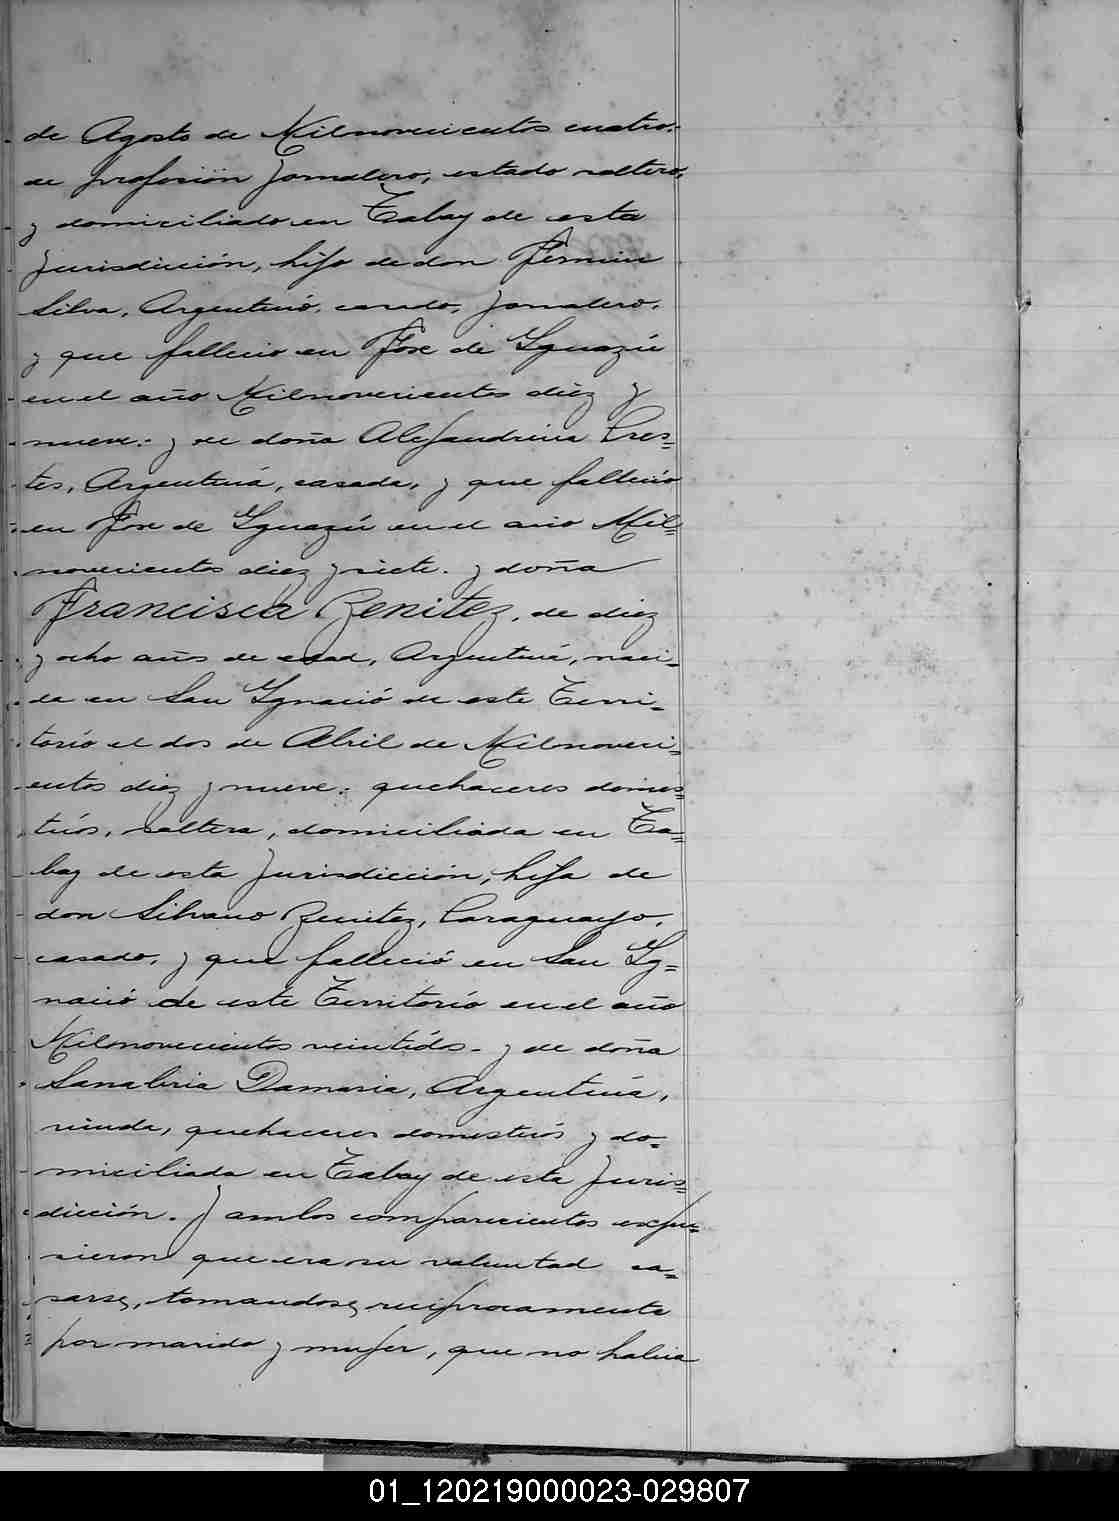 de Agosto de Milnovecientos cuatro.-
de profesión Jornalero, estado soltero,
y domiciliado en Tabay de esta
Jurisdicción, hijo de don Fermin
Silva, Argentinó, casado, Jornalero,
y que fallecio en Fox de Yguazú
en el año Milnovecientos diéz y
nueve.- y de doña Alejandrina Pres=
tes, Argentiná, casada, y que falleció
en Fox de Yguazú en el año Mil=
novecientos diez y siete. y doña
Francisca Benitez, de diez
y ocho años de edad, Argentiná, naci=
da en San Ygnació de este Terri=
torio el dos de Abril de Milnoveci=
entos diez y nueve. quehaceres domes=
ticós, soltera, domiciliada en Ta=
bay de esta Jurisdicción, hija de
don Silvano Benitez, Paraguayo,
casado, y que falleció en San Yg=
nació de este Territorio en el año
Milnovecientos veintidós.- y de doña
Sanabria Damaria, Argentiná,
viuda, quehaceres domesticós y do=
miciliada en Tabay de esta Juris=
dicción. Y ambos comparecientes expu=
sieron que era su voluntad ca=
sarse, tomandose reciprocamente
por marido y mujer, que no habia
01_120219000023-029807